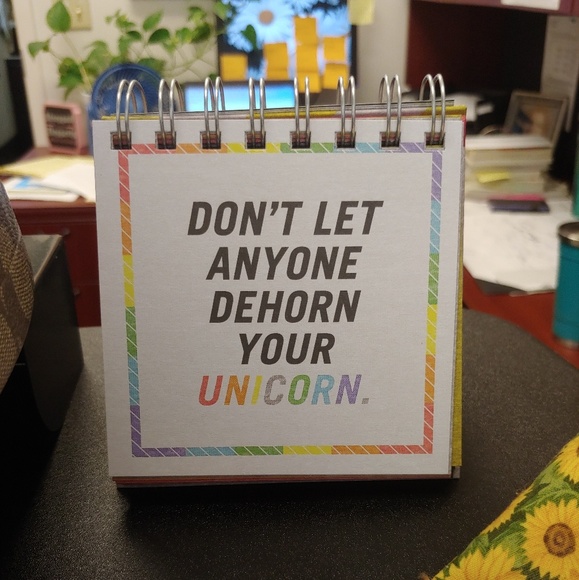 DON'T LET
ANYONE
DEHORN
YOUR
UNICORN.